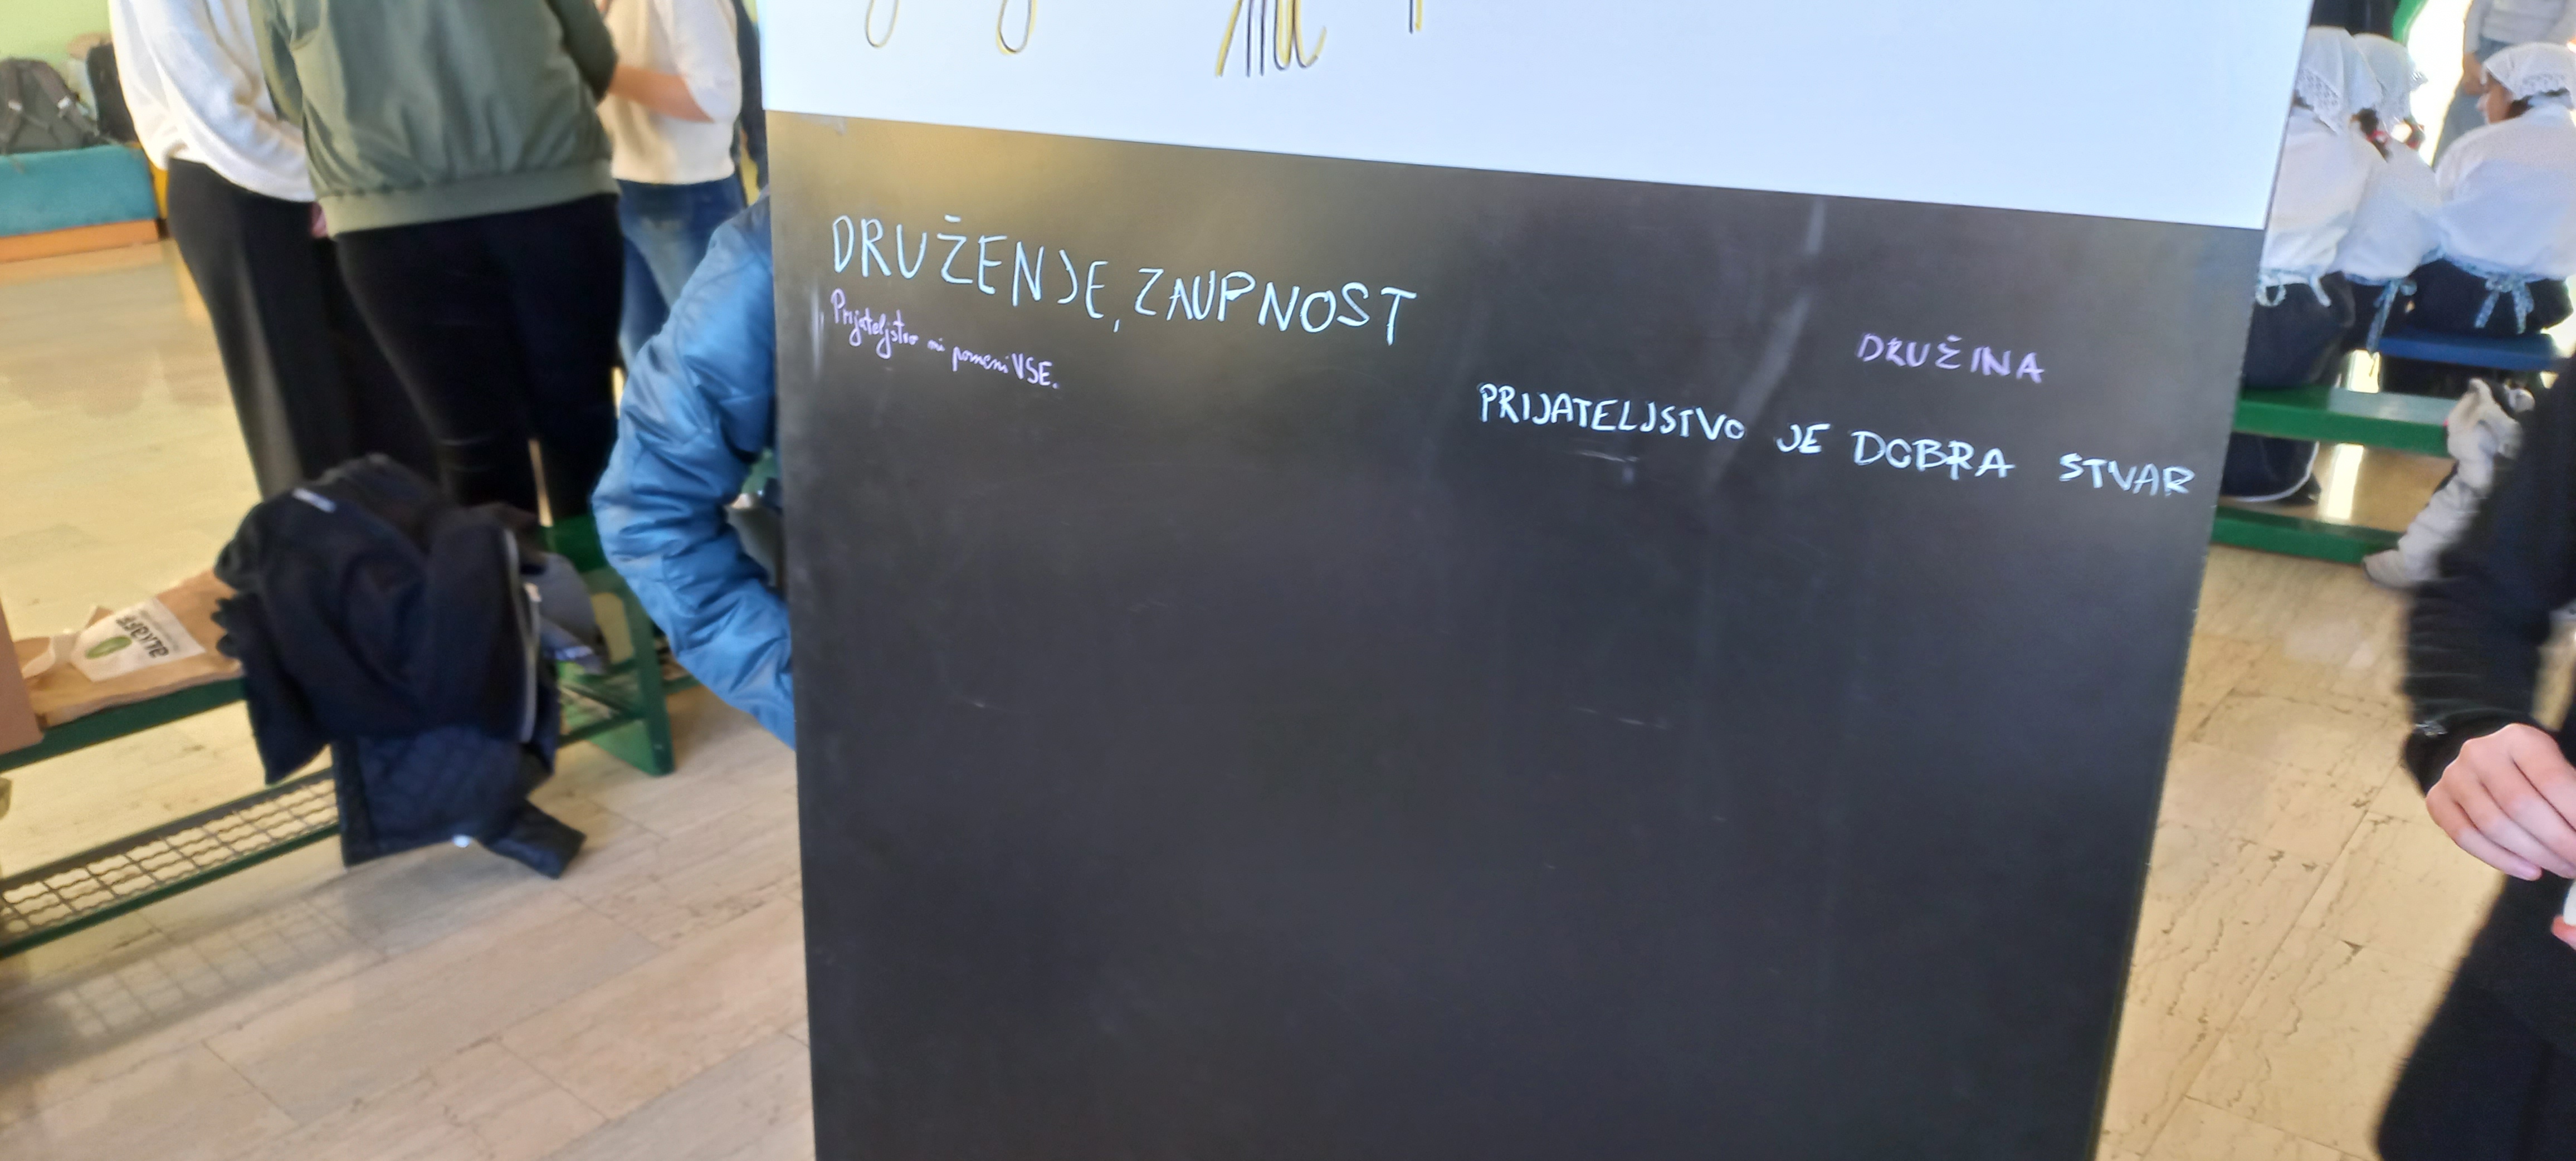 DRUŽENJE, ZAUPNOST
Prijateljstvo mi pomeni VSE.
DRUŽINA
PRIJATELJSTVO JE DOBRA STVAR